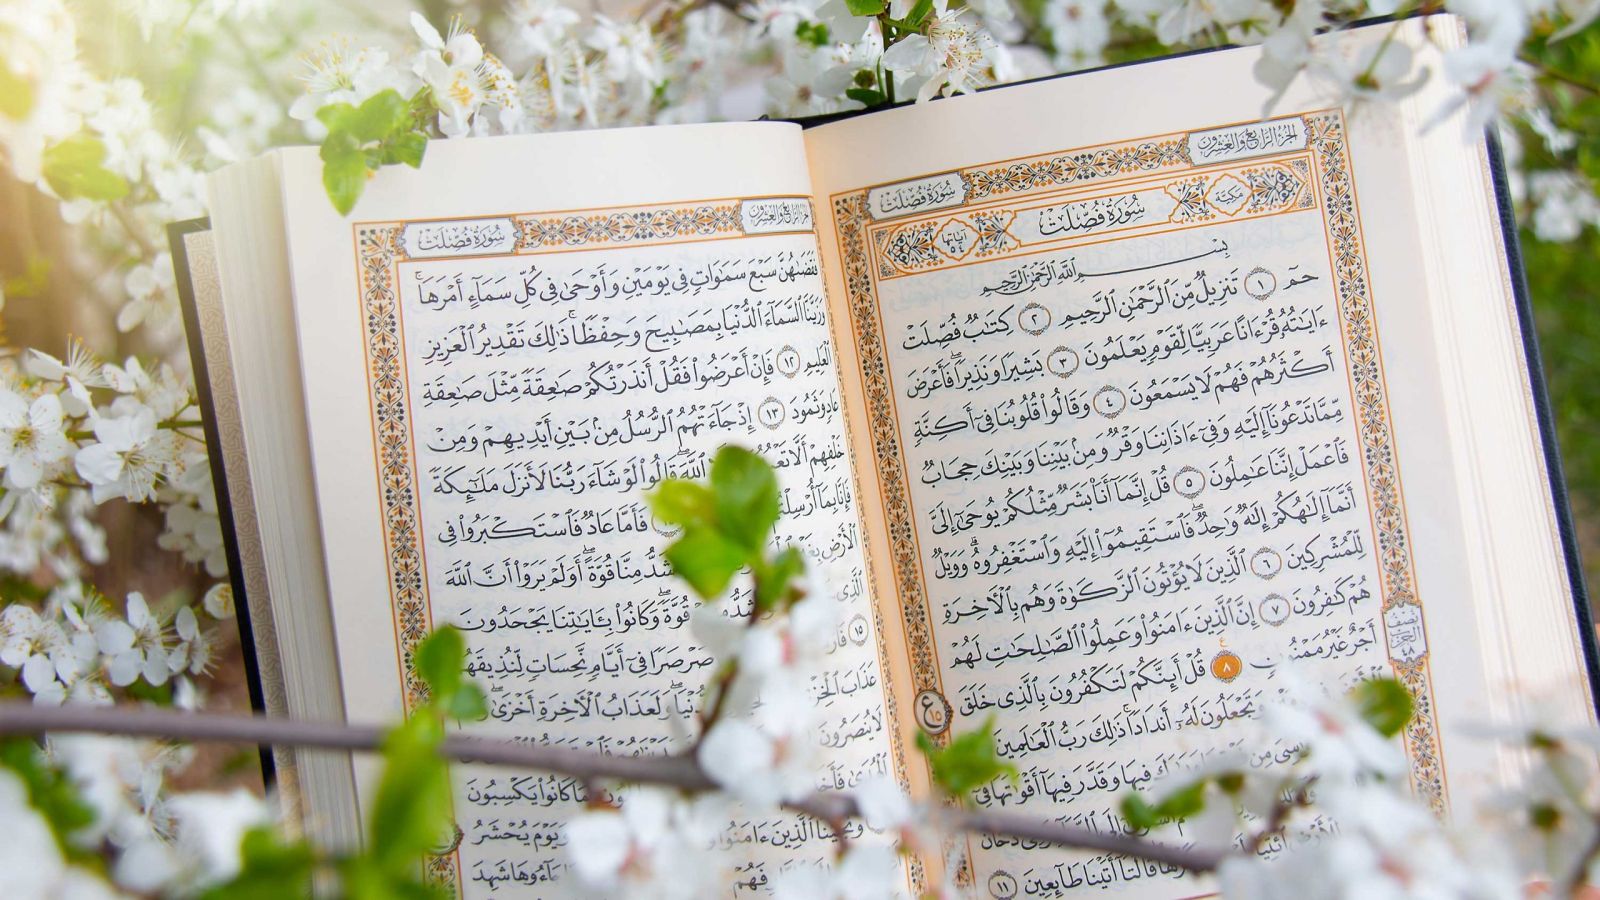 سُورَةُ فُصِّلَتْ
الجُزْءُ الرَّابِعُ وَالعِشْرُونَ
مَكِّيَّة
سُورَةُ فُصِّلَتْ
آيَاتُهَا ٥٤
بِسْمِ ٱللَّهِ ٱلرَّحْمَٰنِ ٱلرَّحِيمِ
حمٓ ١ تَنزِيلٌ مِّنَ ٱلرَّحْمَٰنِ ٱلرَّحِيمِ ٢ كِتَٰبٌ فُصِّلَتْ
ءَايَٰتُهُۥ قُرْءَانًا عَرَبِيًّا لِّقَوْمٍ يَعْلَمُونَ ٣ بَشِيرًا وَنَذِيرًا فَأَعْرَضَ
أَكْثَرُهُمْ فَهُمْ لَا يَسْمَعُونَ ٤ وَقَالُوا۟ قُلُوبُنَا فِىٓ أَكِنَّةٍ
مِّمَّا تَدْعُونَآ إِلَيْهِ وَفِىٓ ءَاذَانِنَا وَقْرٌ وَمِنۢ بَيْنِنَا وَبَيْنِكَ حِجَابٌ
فَٱعْمَلْ إِنَّنَا عَٰمِلُونَ ٥ قُلْ إِنَّمَآ أَنَا۠ بَشَرٌ مِّثْلُكُمْ يُوحَىٰٓ إِلَىَّ
أَنَّمَآ إِلَٰهُكُمْ إِلَٰهٌ وَٰحِدٌ فَٱسْتَقِيمُوٓا۟ إِلَيْهِ وَٱسْتَغْفِرُوهُ ۗ وَوَيْلٌ
لِّلْمُشْرِكِينَ ٦ ٱلَّذِينَ لَا يُؤْتُونَ ٱلزَّكَوٰةَ وَهُم بِٱلْءَاخِرَةِ
هُمْ كَٰفِرُونَ ٧ إِنَّ ٱلَّذِينَ ءَامَنُوا۟ وَعَمِلُوا۟ ٱلصَّٰلِحَٰتِ لَهُمْ
أَجْرٌ غَيْرُ مَمْنُونٍ ٨ قُلْ أَئِنَّكُمْ لَتَكْفُرُونَ بِٱلَّذِى خَلَقَ
وَتَجْعَلُونَ لَهُۥٓ أَندَادًا ۚ ذَٰلِكَ رَبُّ ٱلْعَٰلَمِينَ
فِيهَا وَقَدَّرَ فِيهَآ أَقْوَٰتَهَا فِىٓ
دُخَانٌ
قَالَتَآ أَتَيْنَا طَآئِعِينَ ١١
نِصْف الحِزْب ٤٨
ع ١٥
سُورَةُ فُصِّلَتْ
الجُزْءُ الرَّابِعُ وَالعِشْرُونَ
فَقَضَىٰهُنَّ سَبْعَ سَمَٰوَاتٍ فِى يَوْمَيْنِ وَأَوْحَىٰ فِى كُلِّ سَمَآءٍ أَمْرَهَا ۚ
وَزَيَّنَّا ٱلسَّمَآءَ ٱلدُّنْيَا بِمَصَٰبِيحَ وَحِفْظًا ۚ ذَٰلِكَ تَقْدِيرُ ٱلْعَزِيزِ
ٱلْعَلِيمِ ١٢ فَإِنْ أَعْرَضُوا۟ فَقُلْ أَنذَرْتُكُمْ صَٰعِقَةً مِّثْلَ صَٰعِقَةِ
عَادٍ وَثَمُودَ ١٣ إِذْ جَآءَتْهُمُ ٱلرُّسُلُ مِنۢ بَيْنِ أَيْدِيهِمْ وَمِنْ
خَلْفِهِمْ أَلَّا ٱللَّهَ ۖ قَالُوا۟ لَوْ شَآءَ رَبُّنَا لَأَنزَلَ مَلَٰٓئِكَةً
فَإِنَّا بِمَآ أُرْسِلْتُم فَأَمَّا عَادٌ فَٱسْتَكْبَرُوا۟ فِى
ٱلْأَرْضِ بِغَيْرِ أَشَدُّ مِنَّا قُوَّةً ۖ أَوَلَمْ يَرَوْا۟ أَنَّ ٱللَّهَ
ٱلَّذِى أَشَدُّ مِنْهُمْ قُوَّةً ۖ وَكَانُوا۟ بِـَٔايَٰتِنَا يَجْحَدُونَ
١٥ صَرْصَرًا فِىٓ أَيَّامٍ نَّحِسَاتٍ لِّنُذِيقَهُمْ
عَذَابَ ٱلْخِزْىِ ٱلدُّنْيَا ۖ وَلَعَذَابُ ٱلْءَاخِرَةِ أَخْزَىٰ ۖ
لَا يُنصَرُونَ
كَانُوا۟ يَكْسِبُونَ
وَنَجَّيْنَا ٱلَّذِينَ ءَامَنُوا۟ وَيَوْمَ يُحْشَرُ
فَهُمْ جَآءُوهَا شَهِدَ